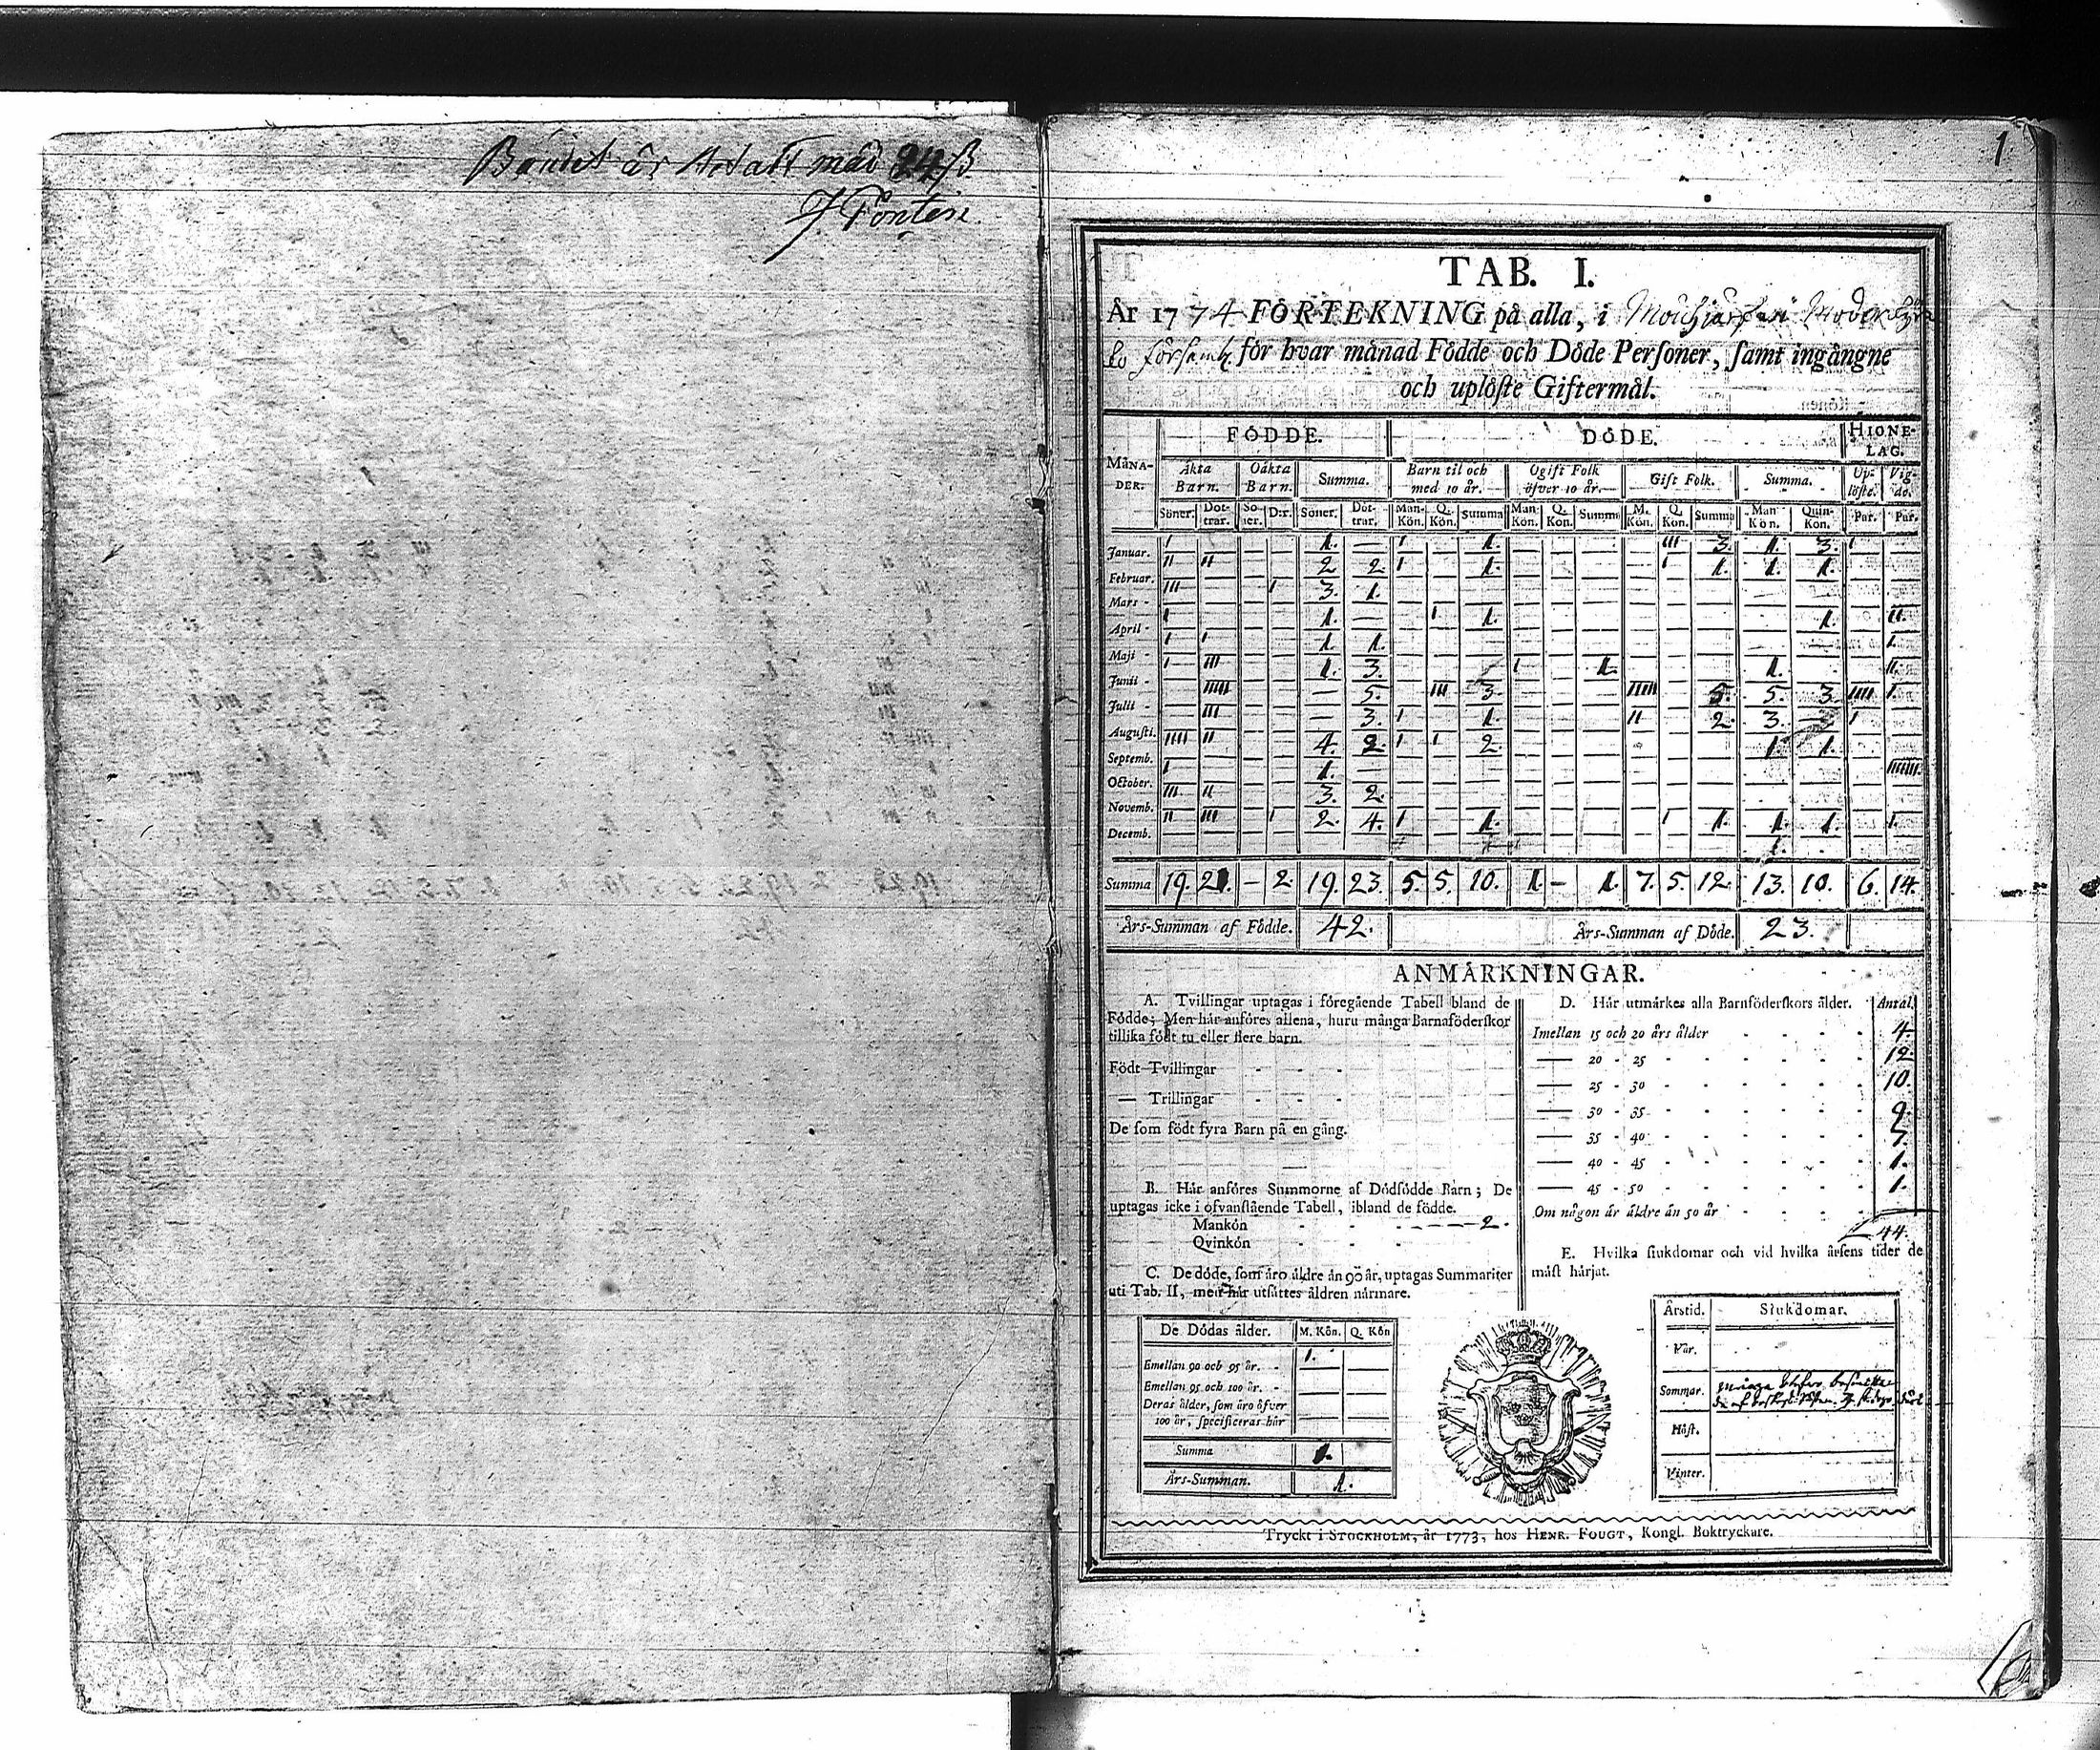 Bandet är
J. Fonten
1
TAB. I.
År 1774 FÖRTEKNING på alla, i
för hvar månad Födde och Döde Perſoner, ſamt ingångne
och uplöſte Giftermål.
MÅNA-DER. FÖDDE. DÖDE. HIONE-LAG.
Äkta Barn. Oäkta Barn. Summa. Barn til och med 10 år. Ogift Folk öfver 10 år. Gift Folk. Summa. Up-löſte. Vig-de.
Söner. Döt-trar. Sö-ner. D:r. Söner. Döt-trar. Man-Kön. Q. Kön. Summa Man Kön. Q. Kon. Summa M. Kön. Q. Kon. Summa Man Kön. Quin-Kon. Par. Par.
Januar. I 1. — I 1. III 3. 1. 3. I
Februar. II II 2 2 I 1. I 1. 1. 1.
Mars - III I 3. 1.
April - I 1. — I 1. 1. II.
Maji - I I 1. 1. I.
Junii - I III 1. 3. I 1. 1. II.
Julii - IIIII — 5. III 3. IIIII 5. 5. 3. IIII I.
Auguſti. III — 3. I 1. II 2. 3. — I
Septemb. IIII II 4. 2. I I 2. 1. 1.
October. I 1. —
Novemb. III II 3. 2.
Decemb. II III I 2. 4. I 1. I 1. 1. 1. I.
Summa 19. 21. — 2. 19. 23. 5. 5. 10. 1. — 1. 7. 5. 12. 13. 10. 6. 14.
Års-Summan af Födde. 42. Års-Summan af Döde. 23.
ANMÄRKNINGAR.
A. Tvillingar uptagas i föregående Tabell bland de
Födde; Men här anföres allena, huru många Barnaföderſkor
tillika födt tu eller flere barn.
Födt Tvillingar - - -
— Trillingar - - -
De ſom födt fyra Barn på en gång.
B. Här anföres Summorne af Dödfödde Barn; De
uptagas icke i ofvanſtående Tabell, ibland de födde.
Mankön - - 2.
Qvinkön - -
C. De döde, ſom äro äldre än 90 år, uptagas Summariter
uti Tab. II, men här utſättes åldren närmare.
De Dödas ålder. M. Kön. Q. Kön
Emellan 90 och 95 år. - 1.
Emellan 95 och 100 år. -
Deras ålder, ſom äro öfver
100 år, ſpecificeras här
Summa 1.
Års-Summan. 1.
D. Här utmärkes alla Barnföderſkors ålder. Antal.
Imellan 15 och 20 års ålder 4.
— 20 - 25 12.
— 25 - 30 10.
— 30 - 35 9.
— 35 - 40 7.
— 40 - 45 1.
— 45 - 50 1.
Om någon är äldre än 50 år
44.
E. Hvilka ſiukdomar och vid hvilka årſens tider de
mäſt härjat.
Årstid. Siukdomar.
Vår.
Sommar.
Höſt.
Vinter.
Tryckt i STOCKHOLM, år 1773, hos HENR. FOUGT, Kongl. Boktryckare.